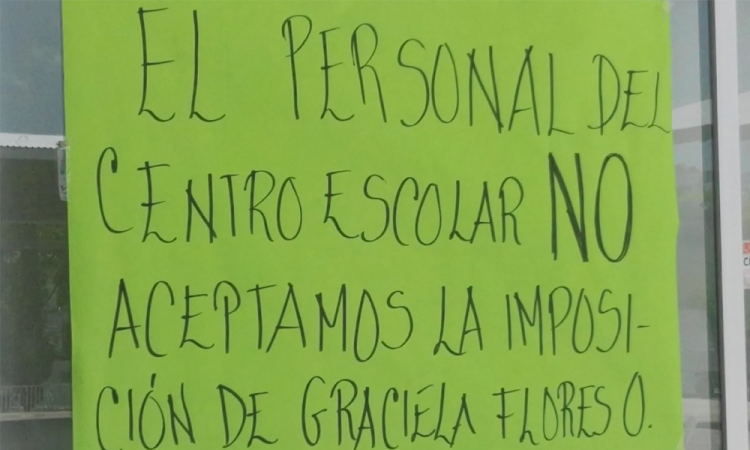 EL PERSONAL DEL
CENTRO ESCOLAR NO
ACEPTAMOS LA IMPOSI-
CIÓN DE GRACIELA FLORES O.